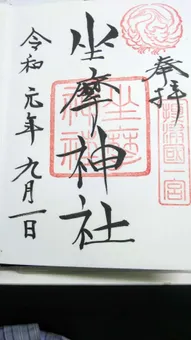 奉拝
摂津國一宮
坐摩神社
坐摩神社
令和元年九月一日